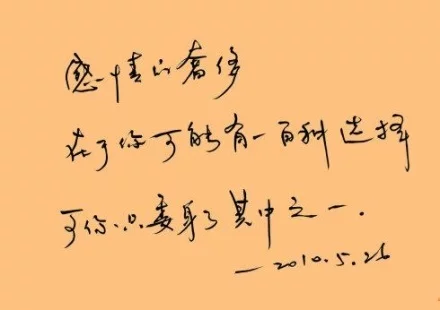 感情的奢侈
在于你可能有一百种选择
可你只委身了其中之一.
—2010.5.26